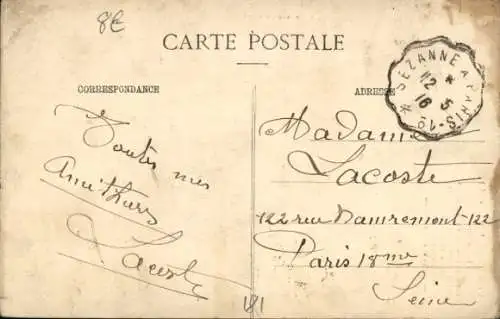 8€
CARTE POSTALE
CORRESPONDANCE
ADRESSE
SEZANNE A PARIS
12 5
16
Toutes mes
Amitiés
Lacoste
Madame
Lacoste
122 rue Damremont-122
Paris 18me
Seine